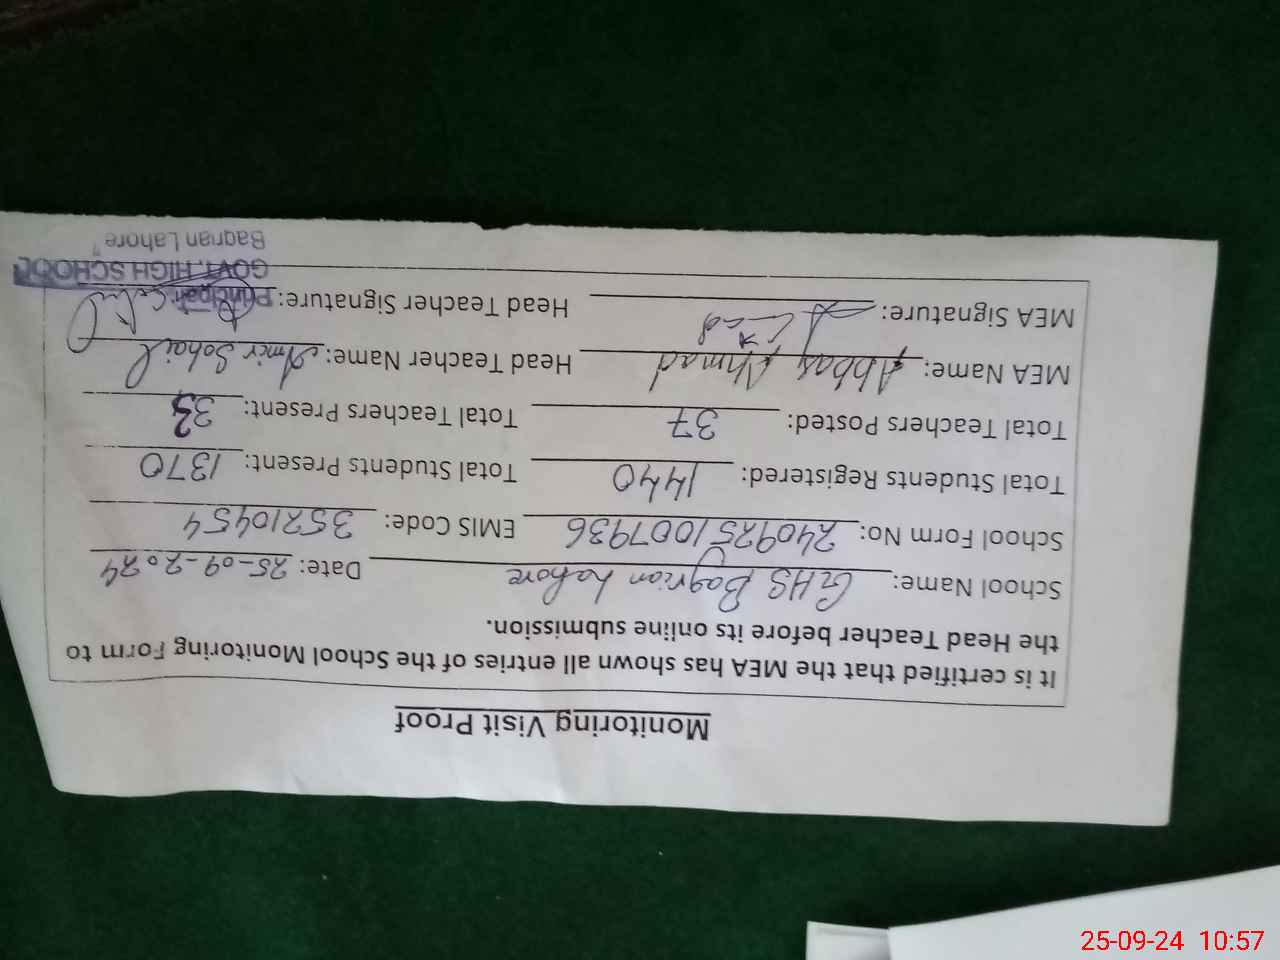 Monitoring Visit Proof
It is certified that the MEA has shown all entries of the School Monitoring Form to
the Head Teacher before its online submission.
School Name: GHS Bagrian Lahore Date: 25-09-2024
School Form No: 240925/007936 EMIS Code: 35210454
Total Students Registered: 1440 Total Students Present: 1370
Total Teachers Posted: 37 Total Teachers Present: 33
MEA Name: Abbas Ahmad Head Teacher Name: Amir Sohail
MEA Signature: Head Teacher Signature:
Principal
GOVT. HIGH SCHOOL
Bagrian Lahore
25-09-24 10:57